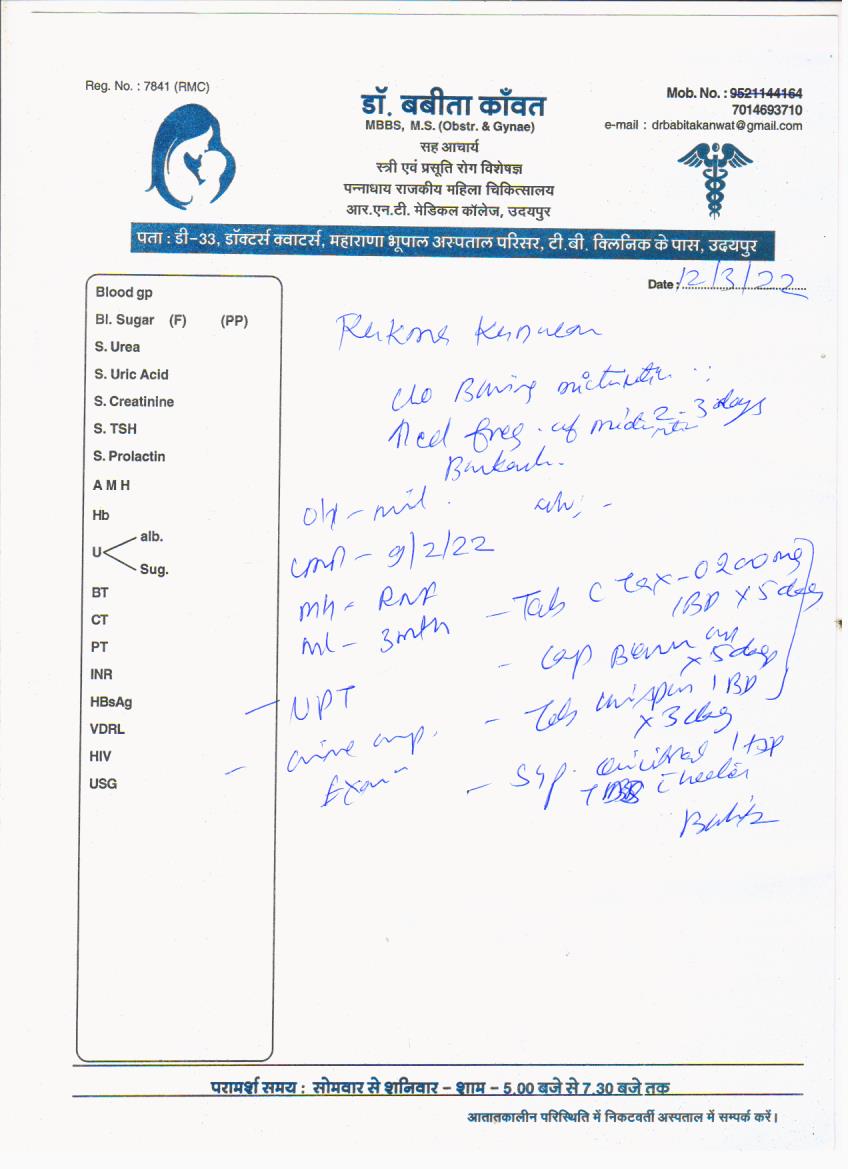 Reg. No. : 7841 (RMC)
डॉ. बबीता काँवत
MBBS, M.S. (Obstr. & Gynae)
सह आचार्य
स्त्री एवं प्रसूति रोग विशेषज्ञ
पन्नाधाय राजकीय महिला चिकित्सालय
आर.एन.टी. मेडिकल कॉलेज, उदयपुर
Mob. No. : 9521144164
7014693710
e-mail : drbabitakanwat@gmail.com
पता : डी-33, डॉक्टर्स क्वाटर्स, महाराणा भूपाल अस्पताल परिसर, टी.बी. क्लिनिक के पास, उदयपुर
Date : 12/3/22
Blood gp
Bl. Sugar (F) (PP)
S. Urea
S. Uric Acid
S. Creatinine
S. TSH
S. Prolactin
A M H
Hb
U alb.
Sug.
BT
CT
PT
INR
HBsAg
VDRL
HIV
USG
c/o micturition
freq. of 2-3 days
O/H -
LMP - 9/2/22
MH -
ML - 3mth
- UPT
- Tab C Tax-O 200mg
1BD x 5 day
- Cap
x 5 day
- Tab 1 BD
x 3 day
- Syp. 1 tsp
परामर्श समय : सोमवार से शनिवार - शाम - 5.00 बजे से 7.30 बजे तक
आतातकालीन परिस्थिति में निकटवर्ती अस्पताल में सम्पर्क करें।